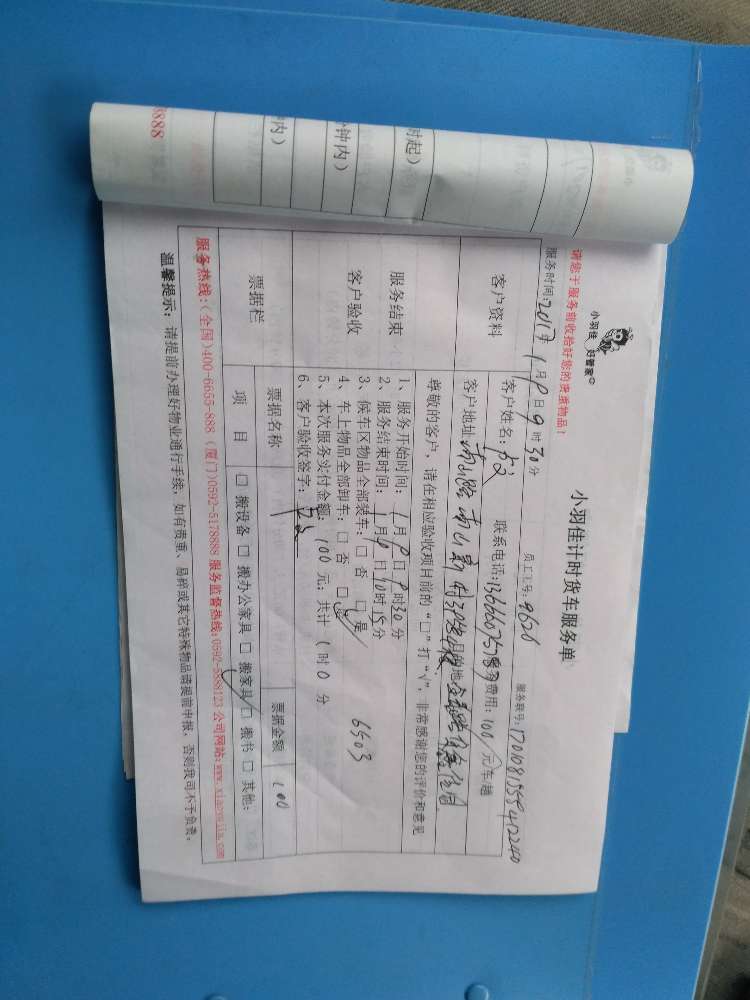 小羽佳 好管家
小羽佳计时货车服务单
请您于服务前收捡好您的贵重物品！
员工工号：9626
服务联号：1701081555412240
服务时间：2017年1月9日9时30分
客户资料
客户姓名：
联系电话：
服务费用：100元/车/趟
客户地址：
目的地：
尊敬的客户，请在相应验收项目前的“□”打“√”，非常感谢您的评价和意见
服务结束
客户验收
1、服务开始时间：1月9日9时30分
2、服务结束时间：1月9日10时15分
3、候车区物品全部装车：□ 否 □ 是
4、车上物品全部卸车：□ 否 □ 是
5、本次服务实付金额：100元；共计 1时0分
6、客户验收签字：
6503
票据栏
票据名称
票据金额
100
项 目
□ 搬设备 □ 搬办公家具 □ 搬家具 □ 搬书 □ 其他：
服务热线：(全国)400-6655-888 (厦门)0592-5178888 服务监督热线：0592-5888123 公司网站：www.xiaoyujia.com
温馨提示：请提前办理好物业通行手续，如有贵重、易碎或其它特殊物品请提前申报，否则我司不予负责。
时起）
钟内）
内）
8888